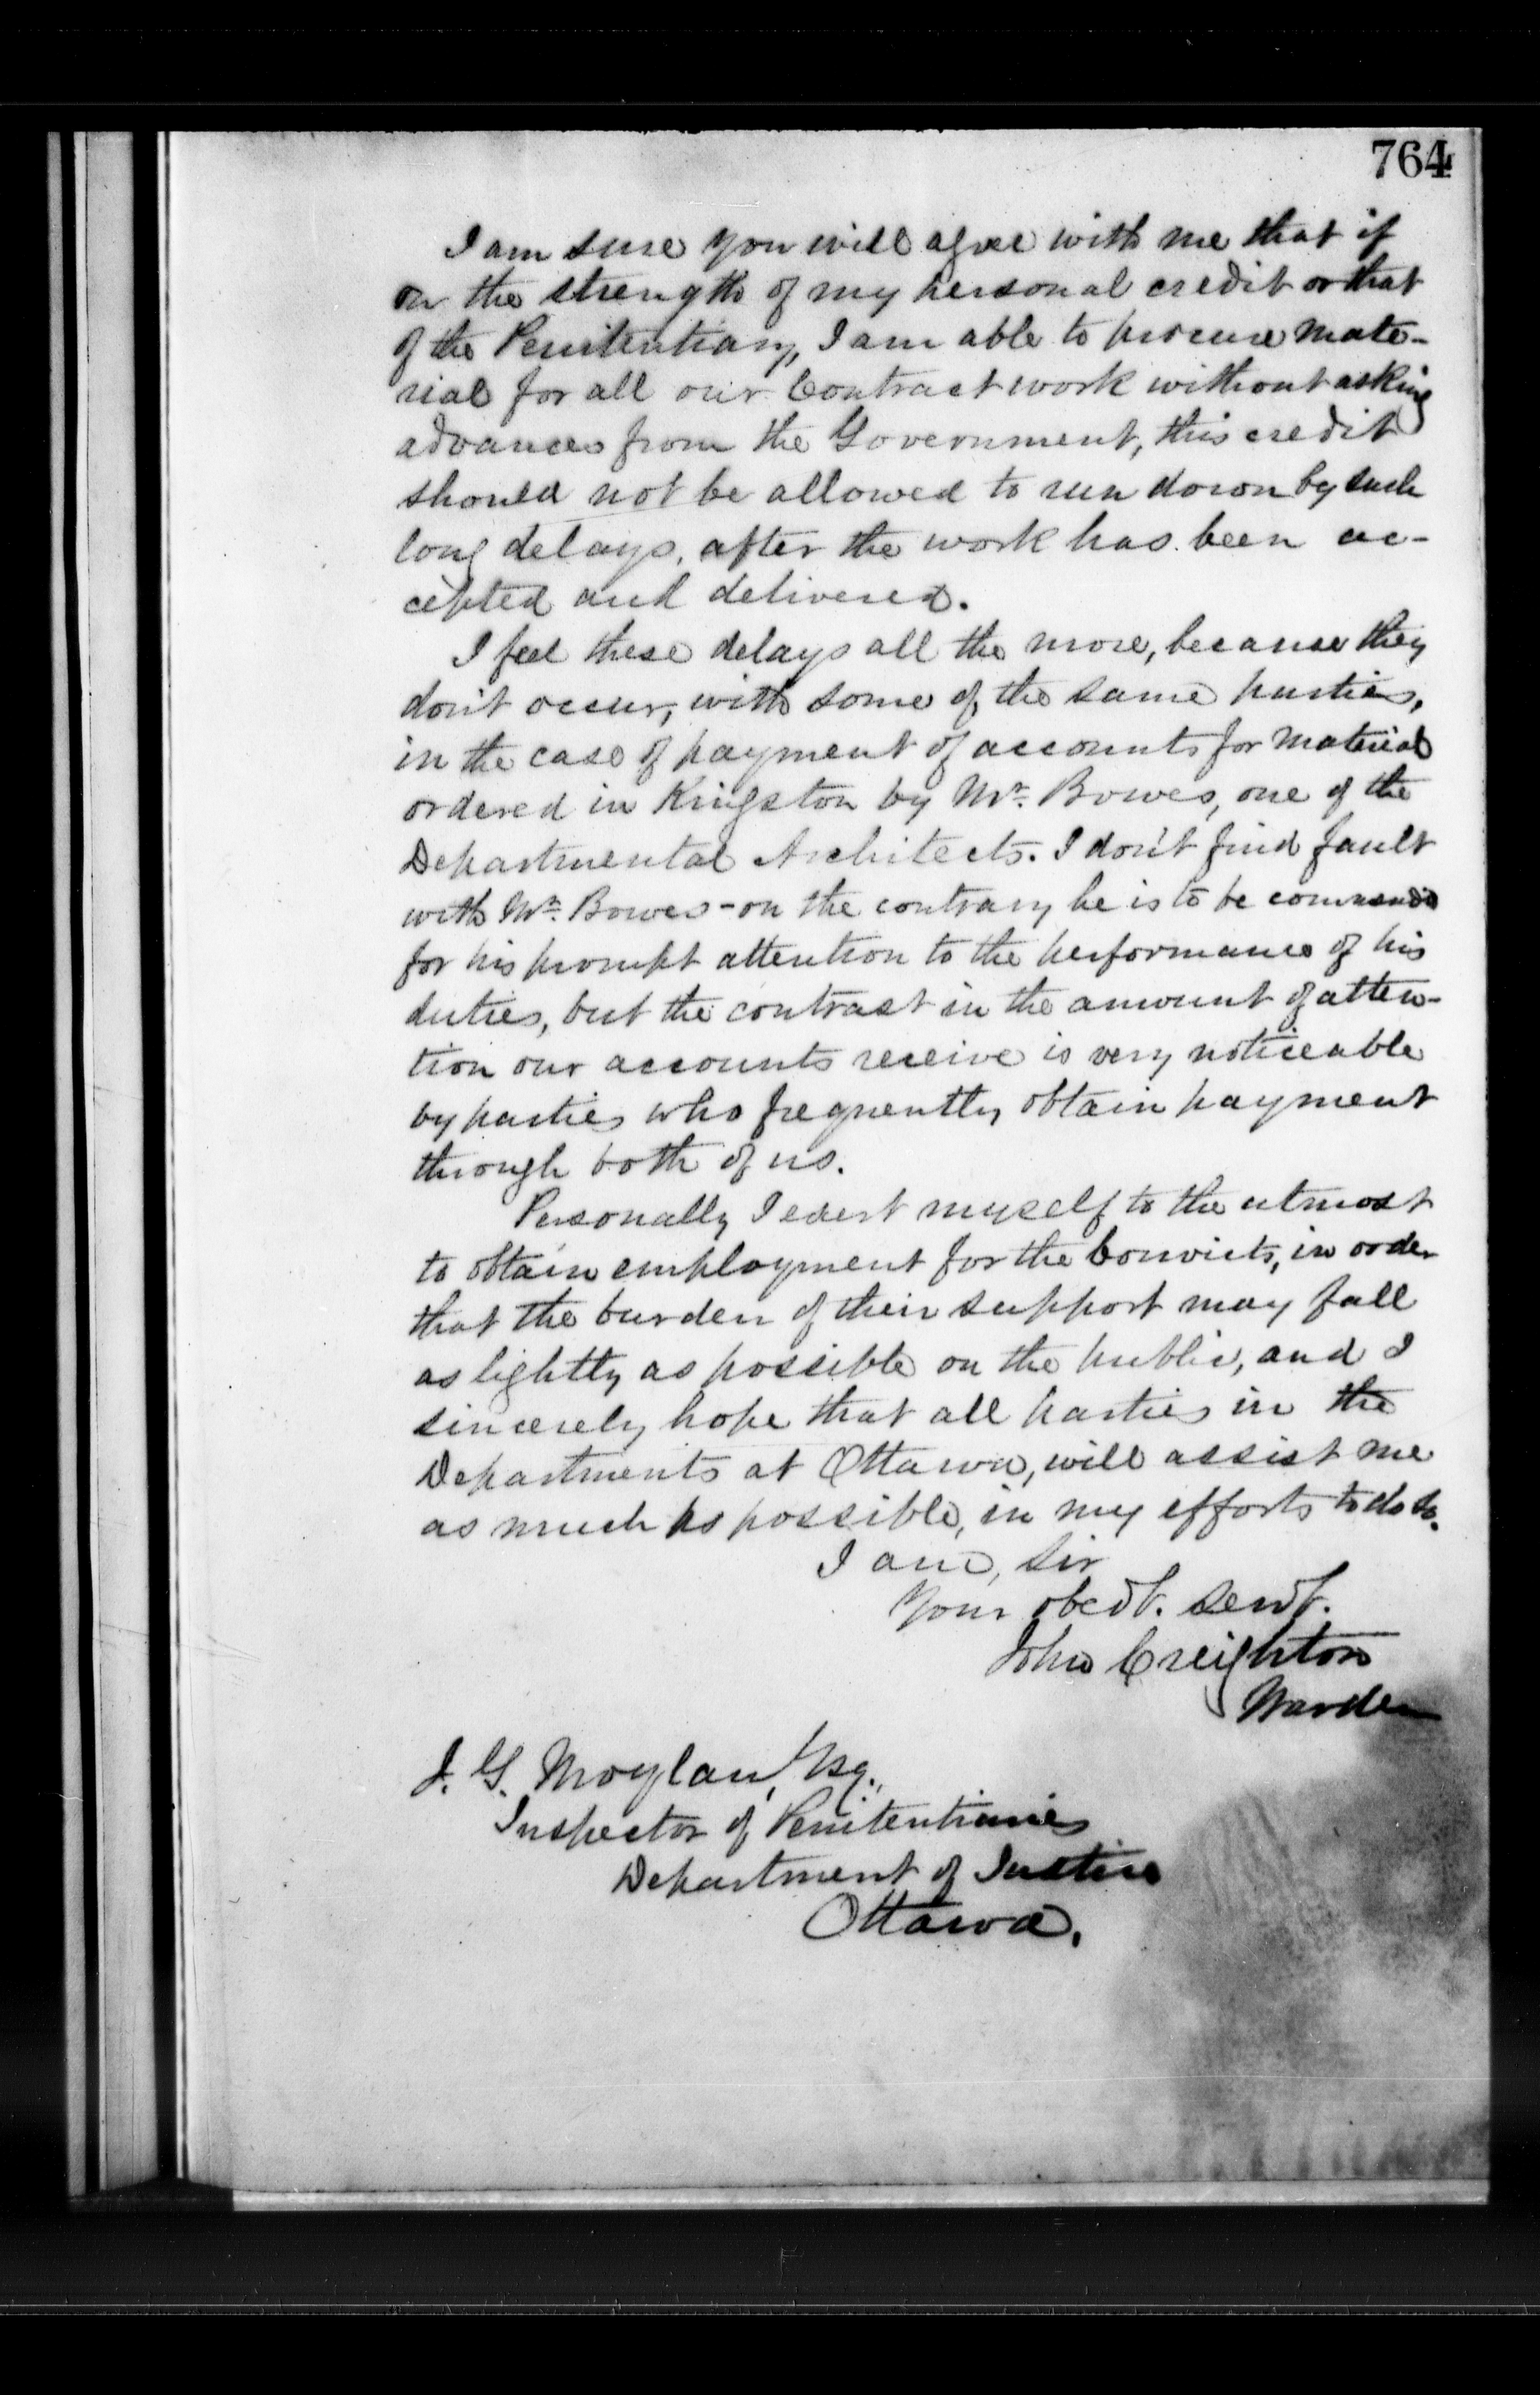 764
I am sure you will agree with me that if
on the strength of my personal credit or that
of the Penitentiary, I am able to procure mate-
rial for all our Contract work without asking
advances from the Government, this credit
should not be allowed to run down by such
long delays, after the work has been ac-
cepted and delivered.
I feel these delays all the more, because they
don't occur, with some of the same parties,
in the case of payment of accounts for material
ordered in Kingston by Mr. Bowes, one of the
Departmental Architects. I don't find fault
with Mr. Bowes - on the contrary he is to be commended
for his prompt attention to the performance of his
duties, but the contrast in the amount of atten-
tion our accounts receive is very noticeable
by parties who frequently obtain payment
through both of us.
Personally I exert myself to the utmost
to obtain employment for the Convicts, in order
that the burden of their support may fall
as lightly as possible on the public, and I
sincerely hope that all parties in the
Departments at Ottawa, will assist me
as much as possible, in my efforts to do so.
I am, Sir
Your obedt. Servt.
John Creighton
Warden
J. G. Moylan, Esq.,
Inspector of Penitentiaries
Department of Justice
Ottawa.